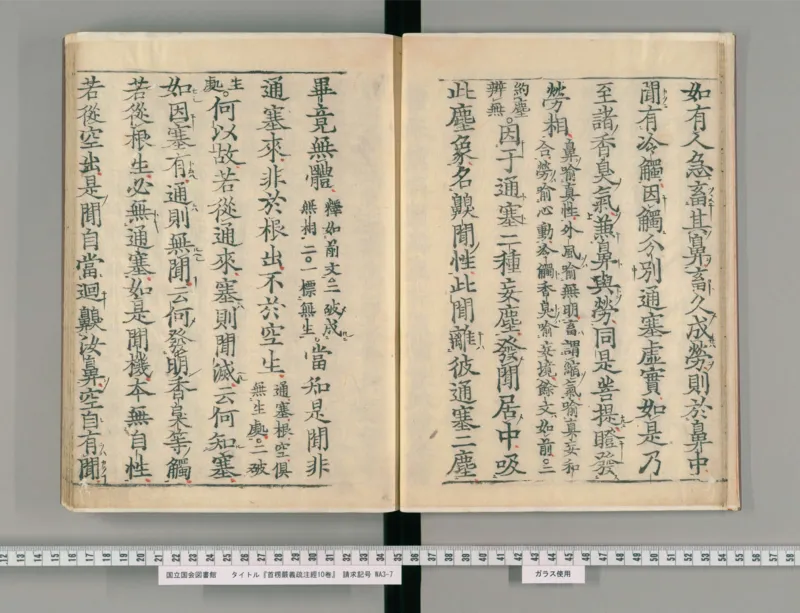 如有人急畜其鼻畜久成勞則於鼻中
聞有冷觸因觸分別通塞虛實如是乃
至諸香臭氣兼鼻與勞同是菩提瞪發
勞相
鼻喻真性外風喻無明畜謂縮氣喻真妄和
合勞喻心動冷觸香臭喻妄境餘文如前○三
約塵
辨無
因于通塞二種妄塵發聞居中吸
此塵象名齅聞性此聞離彼通塞二塵
畢竟無體
釋如前文二破成
無相二○一標無生
當知是聞非
通塞來非於根出不於空生
通塞根空俱
無生處○二破
生
處
何以故若從通來塞則聞滅云何知塞
如因塞有通則無聞云何發明香臭等觸
若從根生必無通塞如是聞機本無自性
若從空出是聞自當迴齅汝鼻空自有聞
国立国会図書館 タイトル『首楞嚴義疏注經10巻』 請求記号 WA3-7
ガラス使用